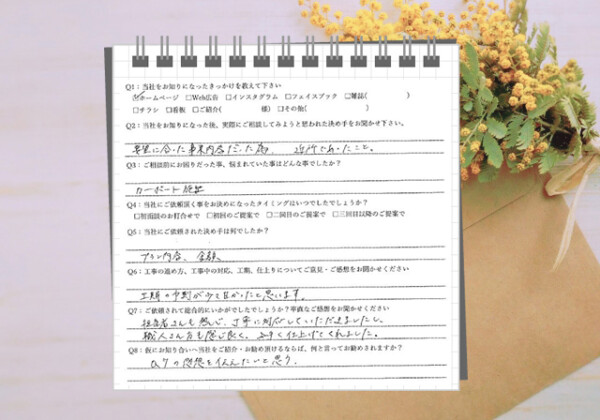 Q1：当社をお知りになったきっかけを教えて下さい
☑ホームページ □Web広告 □インスタグラム □フェイスブック □雑誌( )
□チラシ □看板 □ご紹介( 様) □その他( )
Q2：当社をお知りになった後、実際にご相談してみようと思われた決め手をお聞かせ下さい。
希望に合った事業内容だった為、 近所であったこと。
Q3：ご相談前にお困りだった事、悩まれていた事はどんな事でしたか？
カーポート施工
Q4：当社にご依頼頂く事をお決めになったタイミングはいつでしたでしょうか？
□初面談のお打合せで □初回のご提案で □二回目のご提案で □三回目以降のご提案で
Q5：当社にご依頼された決め手は何でしたか？
プラン内容、金額
Q6：工事の進め方、工事中の対応、工期、仕上りについてご意見・ご感想をお聞かせください
工期の
と思います。
Q7：ご依頼されて総合的にいかがでしたでしょうか？率直なご感想をお聞かせください
担当者さんも熱心で、丁寧に対応していただきましたし、
職人さん方も感じ良く、上手く仕上げてくれました。
Q8：仮にお知り合いへ当社をご紹介・お勧め頂けるならば、何と言ってお勧めされますか？
Q7の感想を伝えたいと思う。